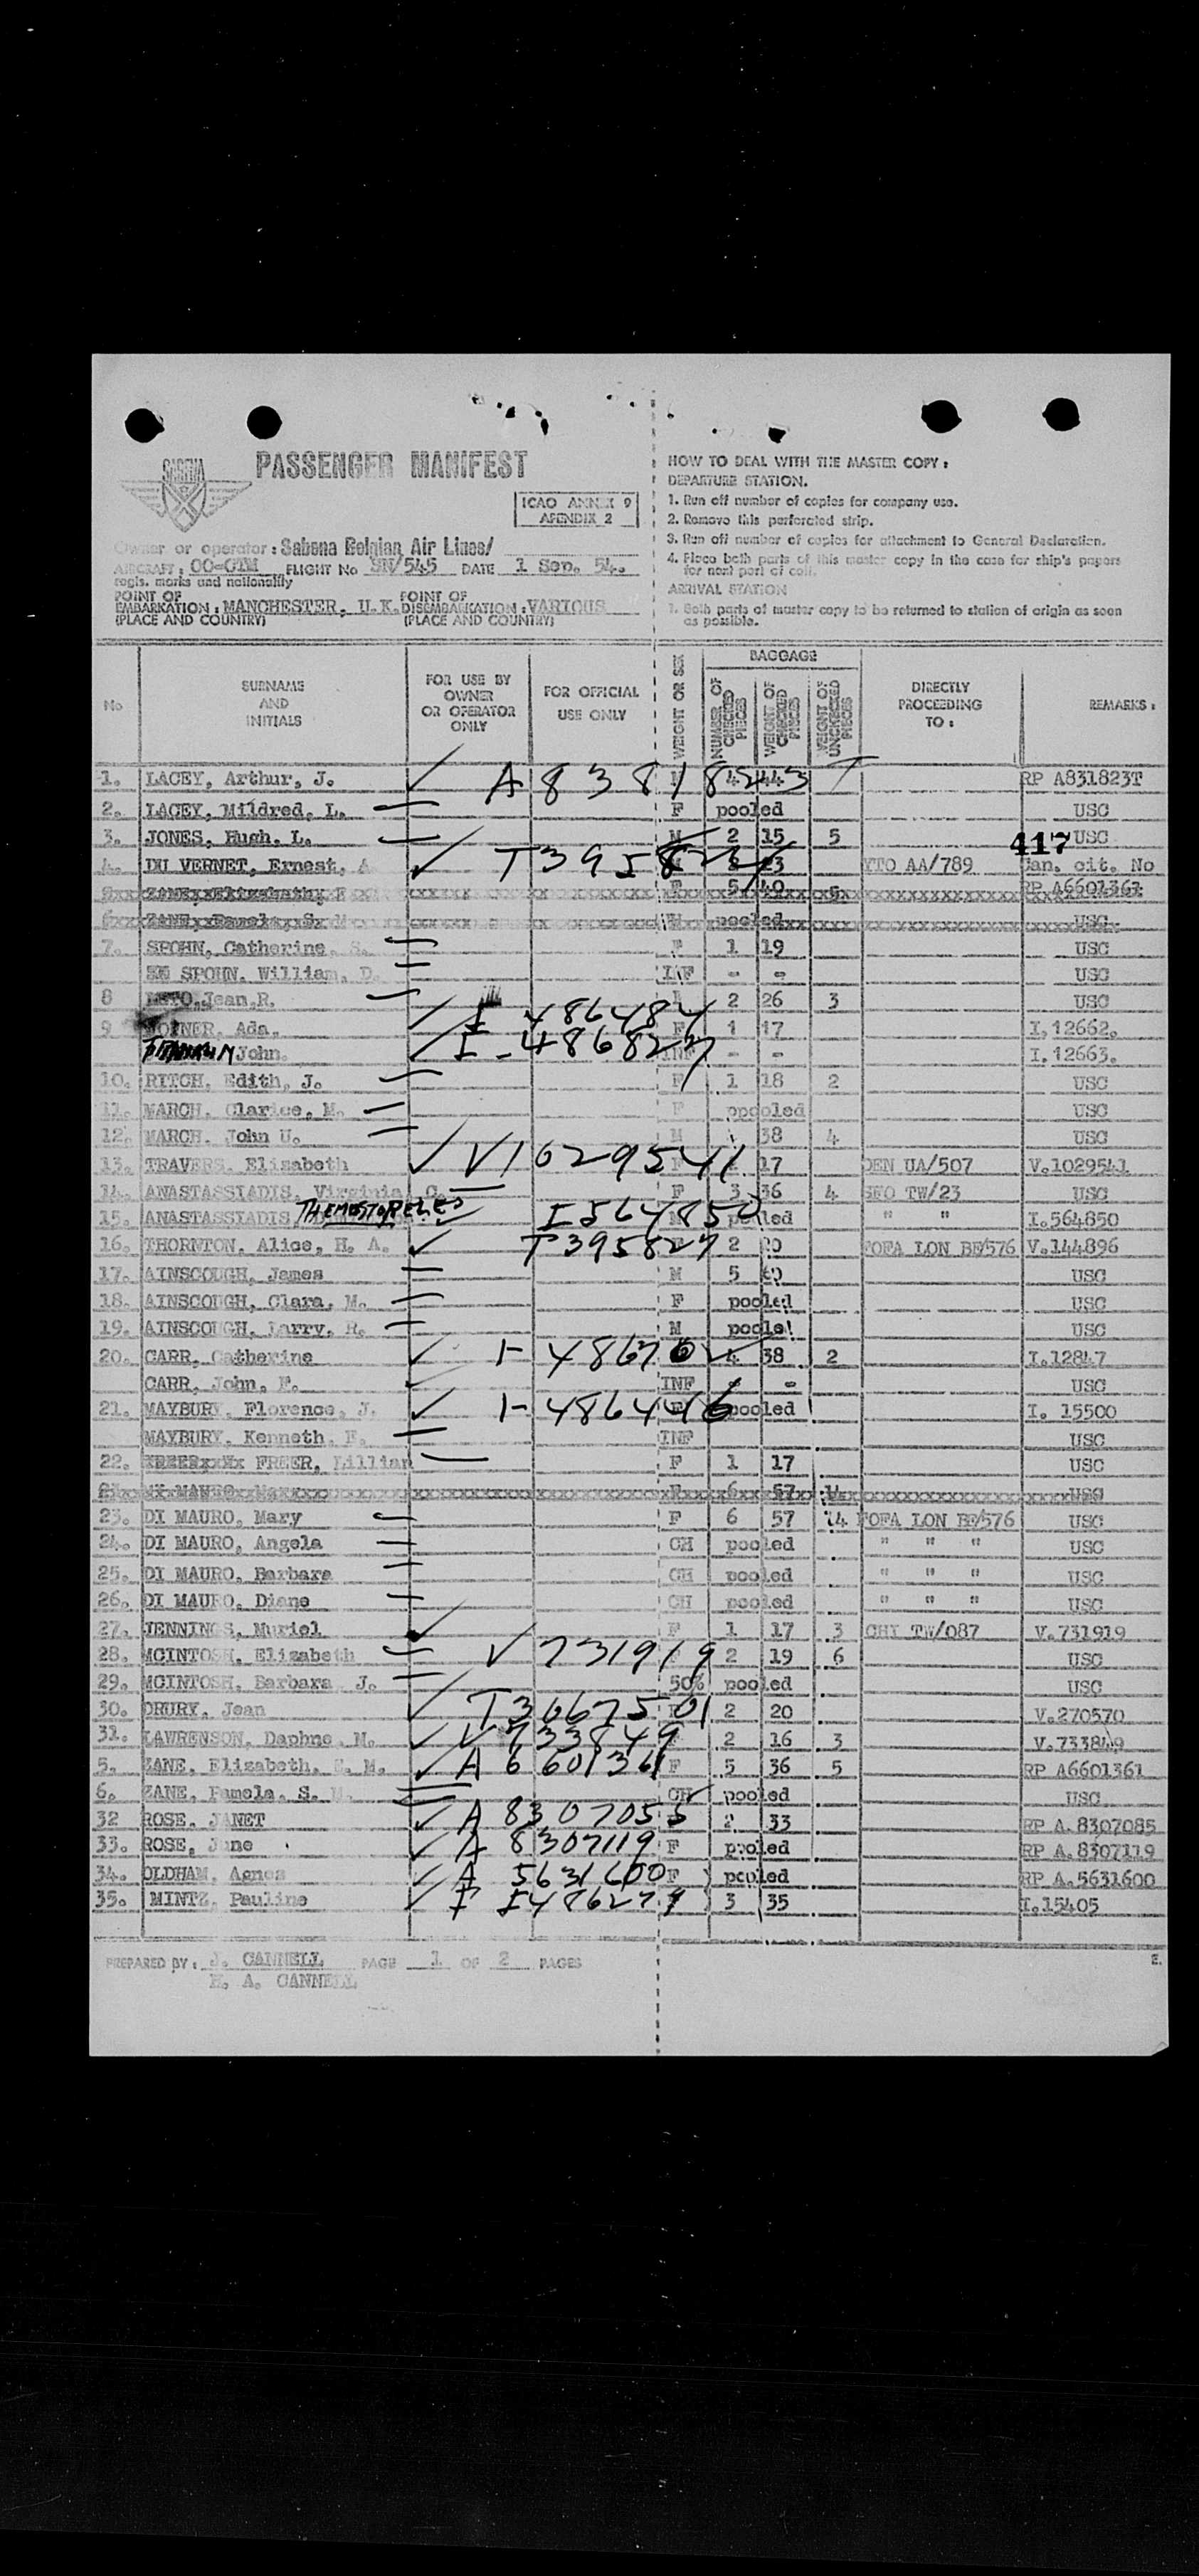 SABENA
PASSENGER MANIFEST
ICAO ANNEX 9
APENDIX 2
Owner or operator : Sabena Belgian Air Lines/
AIRCRAFT : OO-CTM FLIGHT No SN/545 DATE 1 Sep. 54.
regis. marks and nationality
POINT OF EMBARKATION : MANCHESTER, U.K. POINT OF DISEMBARKATION : VARIOUS
(PLACE AND COUNTRY) (PLACE AND COUNTRY)
HOW TO DEAL WITH THE MASTER COPY :
DEPARTURE STATION.
1. Run off number of copies for company use.
2. Remove this perforated strip.
3. Run off number of copies for attachment to General Declaration.
4. Place both parts of this master copy in the case for ship's papers
for next port of call.
ARRIVAL STATION
1. Both parts of master copy to be returned to station of origin as soon
as possible.
No
SURNAME
AND
INITIALS
FOR USE BY
OWNER
OR OPERATOR
ONLY
FOR OFFICIAL
USE ONLY
WEIGHT OR SEX
BAGGAGE
NUMBER OF CHECKED PIECES
WEIGHT OF CHECKED PIECES
WEIGHT OF UNCHECKED PIECES
DIRECTLY
PROCEEDING
TO :
REMARKS :
1. LACEY, Arthur, J. RP A831823T
2. LACEY, Mildred, L. F pooled USC
3. JONES, Hugh, L. M 2 15 5 USC
417
4. DU VERNET, Ernest, A YTO AA/789 Can. cit. No
5 ZANE Elizabeth F 5 40 5 RP A6601361
6 ZANE Pamela S. pooled USC
7. SPOHN, Catherine, S. F 1 19 USC
SPOHN, William, D. INF - - USC
8 Jean.R. 2 26 3 USC
9 JOINER, Ada. I 486484 F 1 17 I.12662.
John. INF - - I.12663.
10. RITCH, Edith, J. F 1 18 2 USC
11. MARCH, Clarice, M. F ppooled USC
12. MARCH, John U. M 38 4 USC
13. TRAVERS, Elizabeth V1029541 17 DEN UA/507 V.1029541
14. ANASTASSIADIS, Virginia, C. F 3 36 4 SFO TW/23 USC
15. ANASTASSIADIS I564850 pooled " " I.564850
16. THORNTON, Alice, H. A. T395827 2 20 FOFA LON BE/576 V.144896
17. AINSCOUGH, James M 5 60 USC
18. AINSCOUGH, Clara, M. F pooled USC
19. AINSCOUGH, Larry, R. M pooled USC
20. CARR, Catherine 4 38 2 I.12847
CARR, John, F. INF - - USC
21. MAYBURY, Florence, J. I-486446 pooled I. 15500
MAYBURY, Kenneth, F. INF USC
22. FREER, Lillian F 1 17 USC
23. DI MAURO, Mary F 6 57 14 FOFA LON BE/576 USC
24. DI MAURO, Angela CH pooled " " " USC
25. DI MAURO, Barbara CH pooled " " " USC
26. DI MAURO, Diane CH pooled " " " USC
27. JENNINGS, Muriel F 1 17 3 CHI TW/087 V.731919
28. MCINTOSH, Elizabeth V 731919 2 19 6 USC
29. MCINTOSH, Barbara J. 50% pooled USC
30. DRURY, Jean T3667501 2 20 V.270570
31. LAWRENSON, Daphne, M. V 733849 2 16 3 V.733849
5. ZANE, Elizabeth, S. M. A 6601361 F 5 36 5 RP A6601361
6. ZANE, Pamela, S. M. CH pooled USC
32 ROSE, JANET 2 33 RP A.8307085
33. ROSE, June A 8307119 F pooled RP A.8307119
34. OLDHAM, Agnes A 5631600 F pooled RP A.5631600
35. MINTZ, Pauline 3 35 I.15405
PREPARED BY : J. CANNELL PAGE 1 OF 2 PAGES
H. A. CANNELL